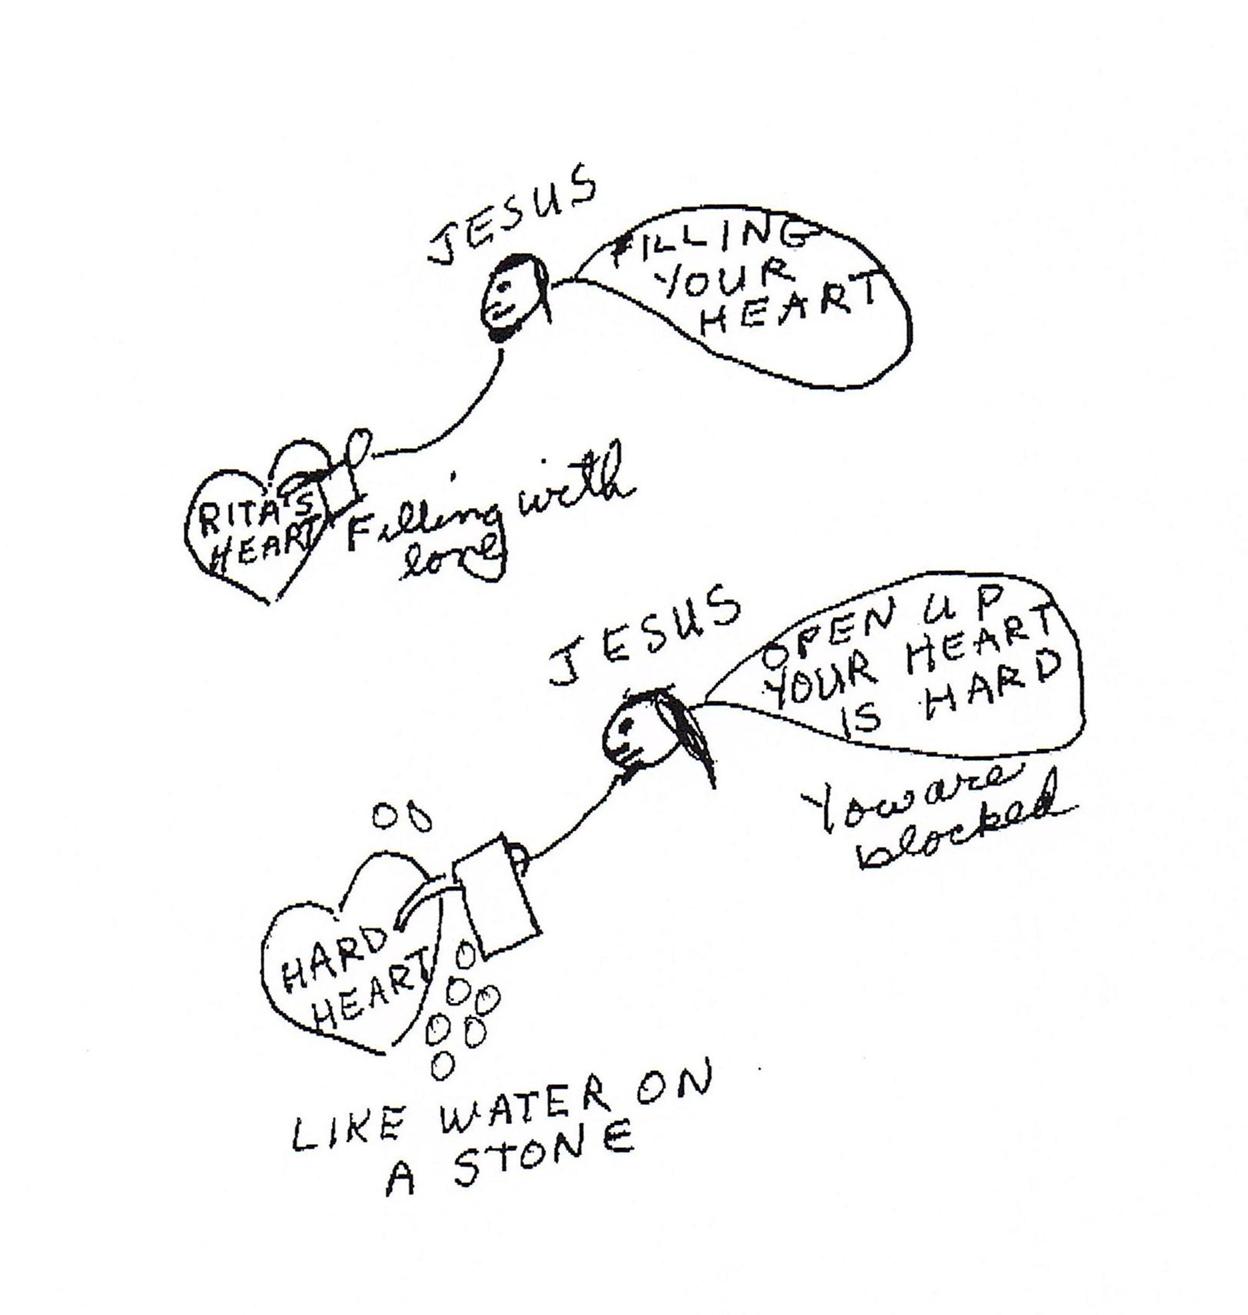 JESUS
FILLING
YOUR
HEART
RITA'S
HEART
Filling with
love
JESUS
OPEN UP
YOUR HEART
IS HARD
You are
blocked
HARD
HEART
LIKE WATER ON
A STONE